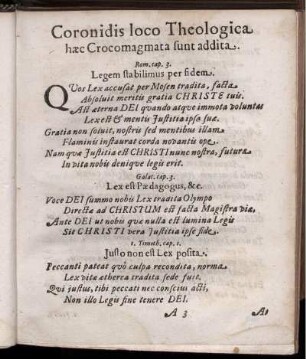 Coronidis loco Theologica
hæc Crocomagmata sunt addita.
Rom. cap. 3.
Legem stabilimus per fidem.
QVos Lex accusat per Mosen tradita, facta
Absolvit meritis gratia CHRISTE tuis.
Ast æterna DEI quando atque immota voluntas
Lex est & mentis Justitia ipsa suæ.
Gratia non solvit, nostris sed mentibus illam
Flaminis instaurat corda novantis ope.
Nam quæ Justitia est CHRISTI nunc nostra, futura
In vita nobis denique legis erit.
Galat. cap. 3.
Lex est Pædagogus, &c.
Voce DEI summo nobis Lex tradita Olympo
Directa ad CHRISTUM est facta Magistra via.
Ante DEI ut nobis quæ nulla est lumina Legis
Sit CHRISTI vera Justitia ipse fide.
1. Timoth. cap. 1.
Justo non est Lex posita.
Peccanti pateat quò culpa recondita, norma
Lex vitæ ætherea tradita sede fuit.
Qui justus, tibi peccati nec conscius acti,
Non illo Legis sine tenere DEI.
A 3